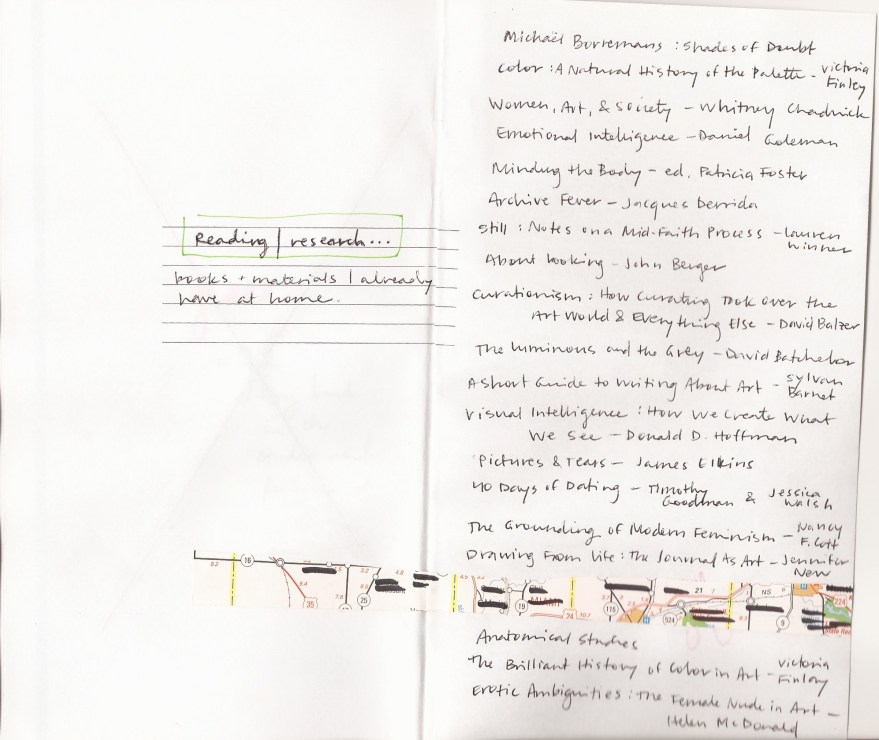 Reading | research...
books + materials I already
have at home.
Michaël Borremans : Shades of Doubt
Color : A Natural History of the Palette - Victoria
Finley
Women, Art, & Society - Whitney Chadwick
Emotional Intelligence - Daniel Goleman
Minding the Body - ed. Patricia Foster
Archive Fever - Jacques Derrida
Still : Notes on a Mid-Faith Process - Lauren
Winner
About Looking - John Berger
Curationism : How Curating Took Over the
Art World & Everything Else - David Balzer
The Luminous and the Grey - David Batchelor
A Short Guide to Writing About Art - Sylvan
Barnet
Visual Intelligence : How We Create What
We See - Donald D. Hoffman
Pictures & Tears - James Elkins
40 Days of Dating - Timothy
Goodman & Jessica
Walsh
The Grounding of Modern Feminism - Nancy
F. Cott
Drawing From Life : The Journal As Art - Jennifer
New
8.2 16 9.4 35 7.6 25 5.2 4.8 19 74 10.7 115 524 21 NS 9.0 9 224
Anatomical Studies
The Brilliant History of Color in Art - Victoria
Finlay
Erotic Ambiguities : The Female Nude in Art -
Helen McDonald